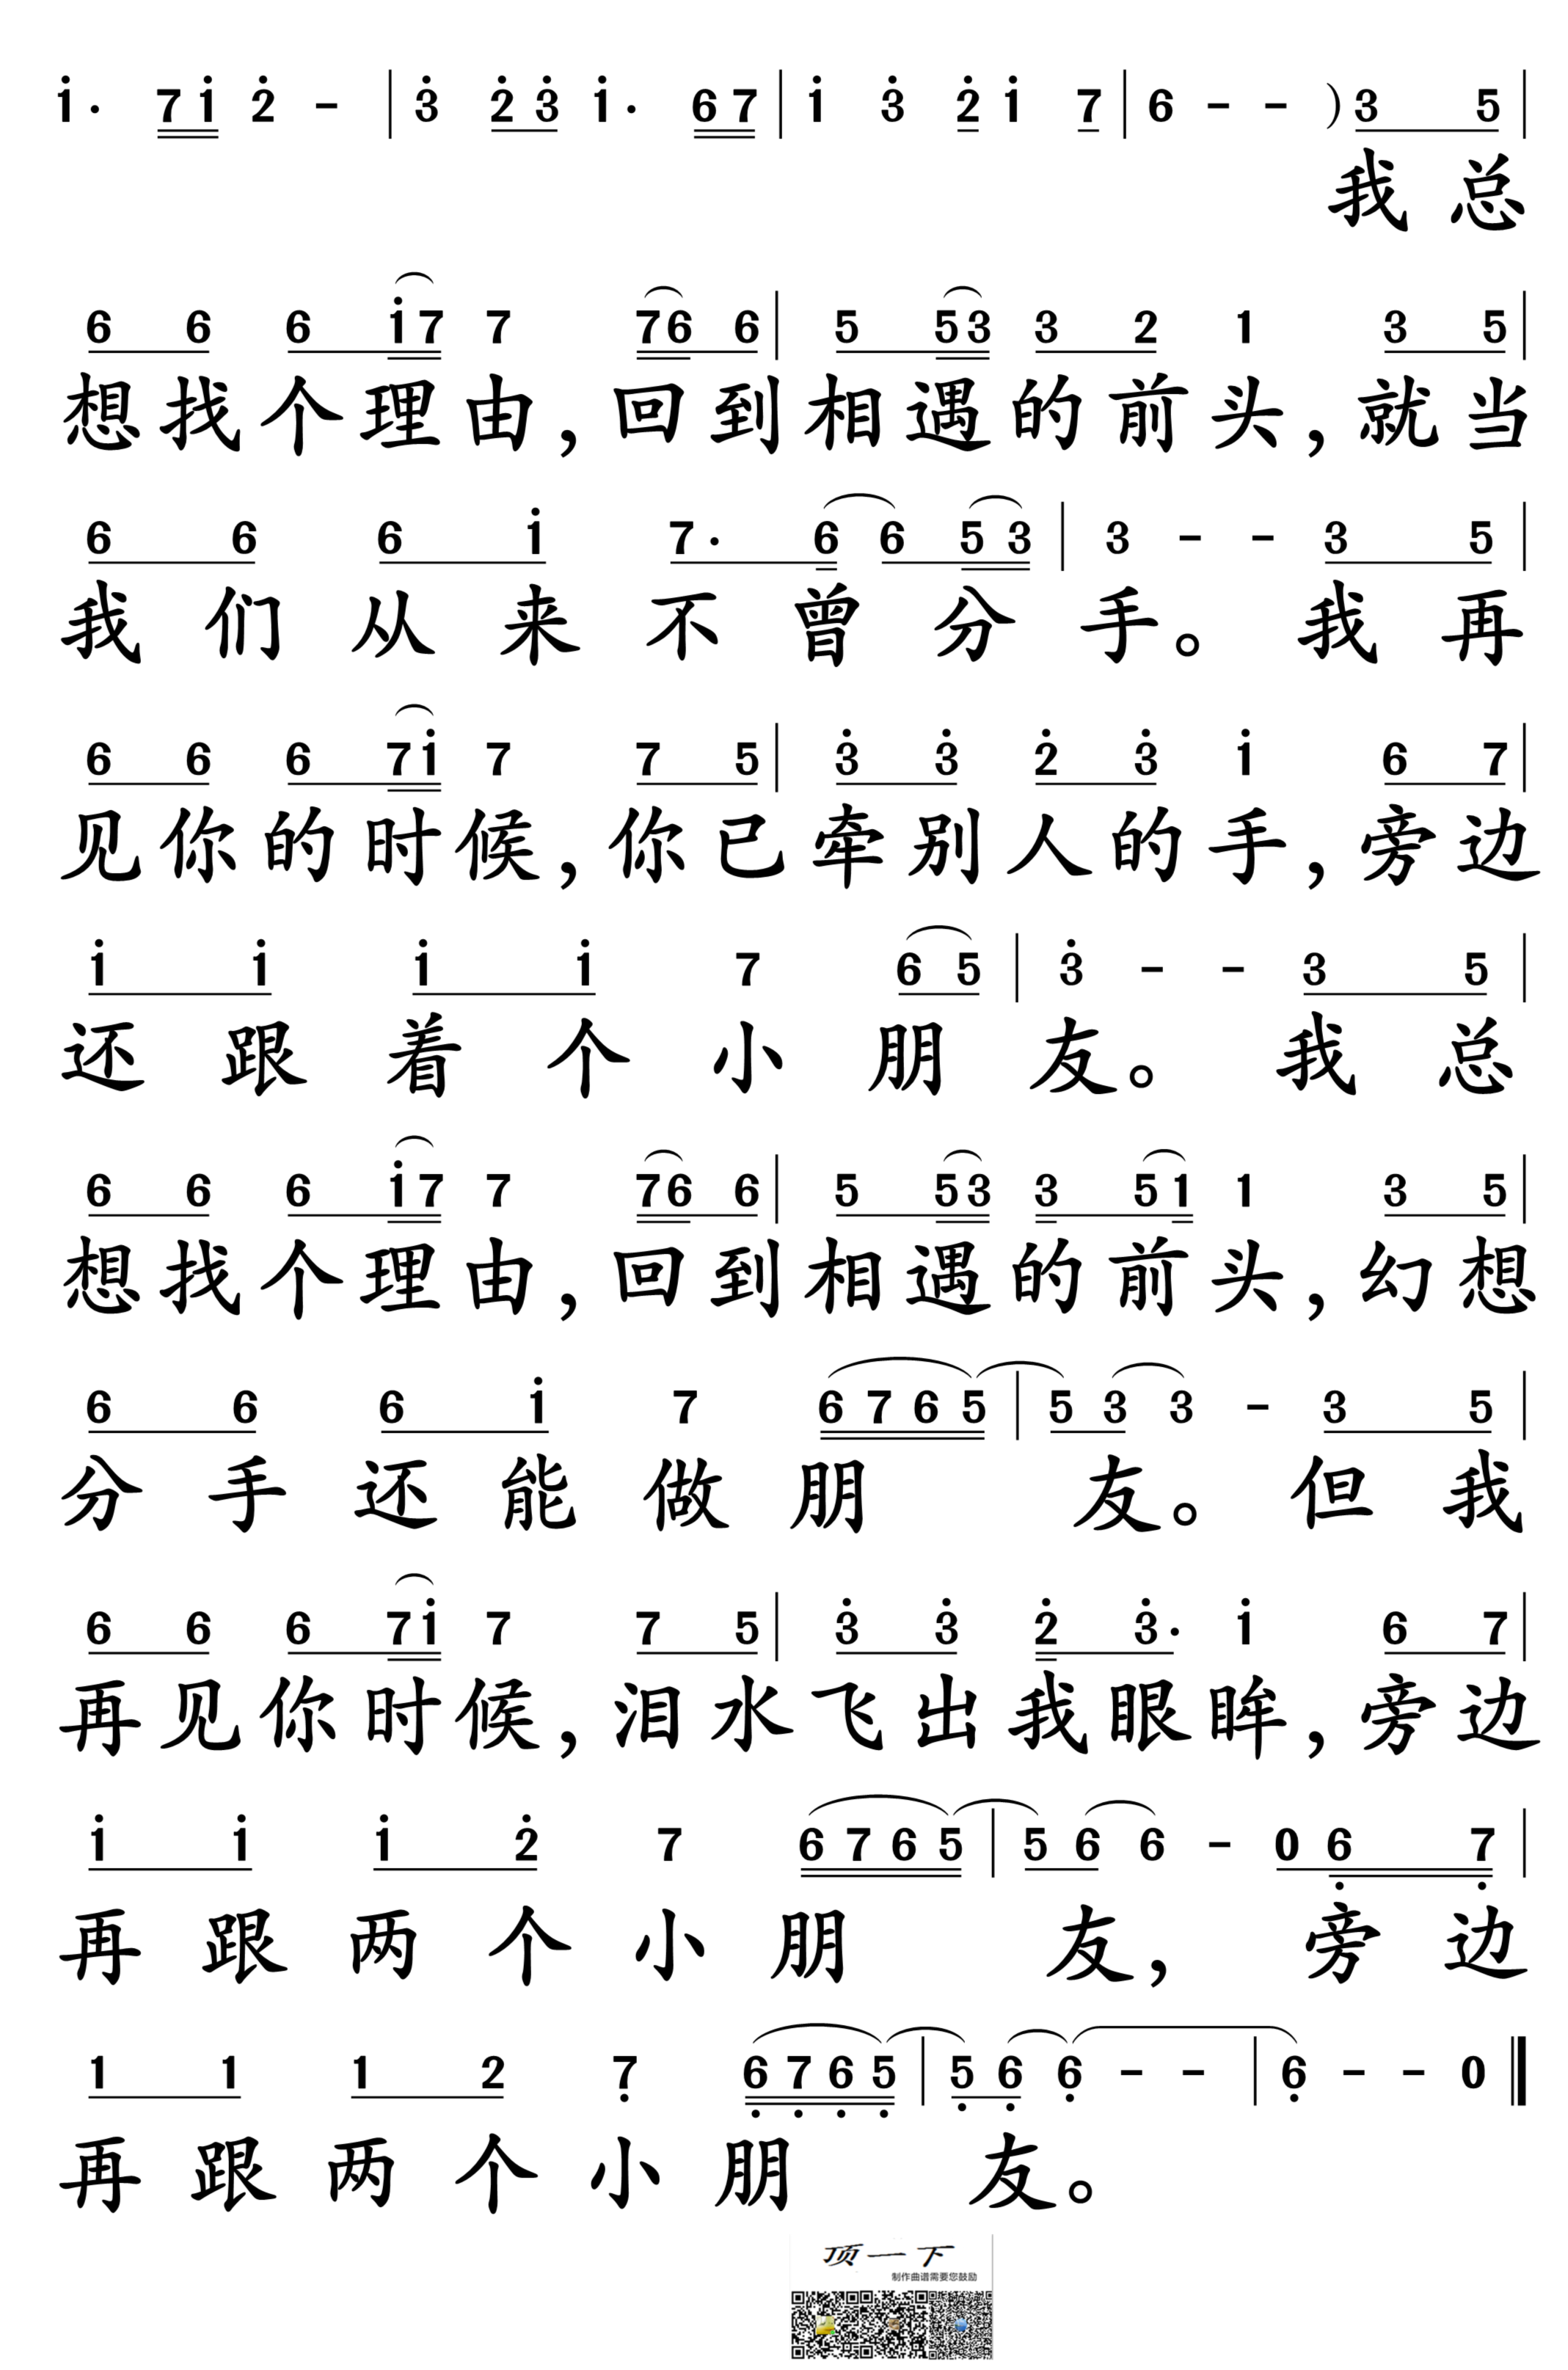 i· 7i 2̇ - | 3̇ 2̇3̇ i· 67 | i 3̇ 2̇i 7 | 6 - - ) 3 5 |
我 总
6 6 6 i7 7 76 6 | 5 53 3 2 1 3 5 |
想找个理由,回到相遇的前头,就当
6 6 6 i 7· 6 6 53 | 3 - - 3 5 |
我们从来不曾分手。我再
6 6 6 7i 7 7 5 | 3̇ 3̇ 2̇ 3̇ i 6 7 |
见你的时候,你已牵别人的手,旁边
i i i i 7 6 5 | 3̇ - - 3 5 |
还跟着个小朋友。我总
6 6 6 i7 7 76 6 | 5 53 3 51 1 3 5 |
想找个理由,回到相遇的前头,幻想
6 6 6 i 7 6765 | 5 3 3 - 3 5 |
分手还能做朋友。但我
6 6 6 7i 7 7 5 | 3̇ 3̇ 2̇ 3̇· i 6 7 |
再见你时候,泪水飞出我眼眸,旁边
i i i 2̇ 7 6765 | 5 6 6 - 0 6̣ 7̣ |
再跟两个小朋友,旁边
1 1 1 2 7̣ 6̣7̣6̣5̣ | 5̣ 6̣ 6̣ - - | 6̣ - - 0 ‖
再跟两个小朋友。
顶一下
制作曲谱需要您鼓励